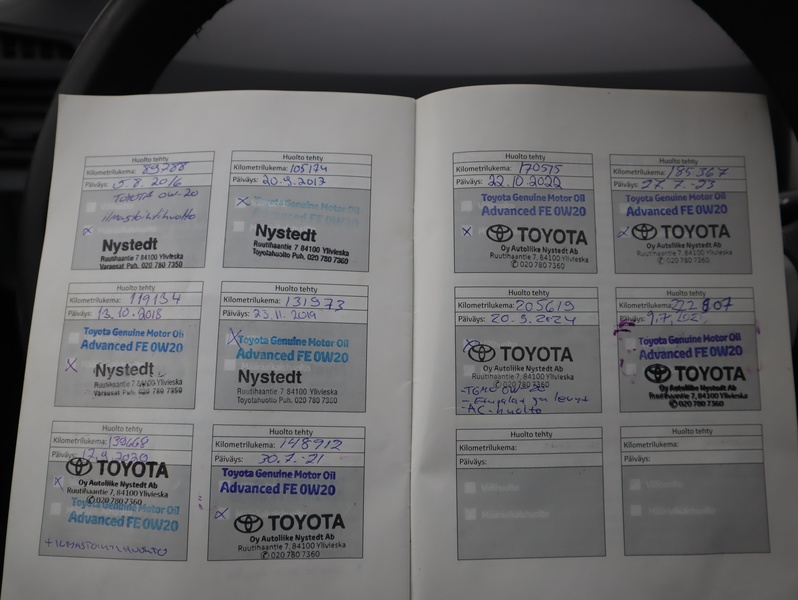 Huolto tehty
Kilometrilukema: 89788
Päiväys: 5.8. 2016
TOYOTA 0W-20
ilmastointihuolto
X
Nystedt
Ruutihaantie 7 84100 Ylivieska
Varaosat Puh. 020 780 7350
Huolto tehty
Kilometrilukema: 105174
Päiväys: 20.9.2017
X Toyota Genuine Motor Oil
Advanced FE 0W20
Nystedt
Ruutihaantie 7 84100 Ylivieska
Toyotahuolto Puh. 020 780 7360
Huolto tehty
Kilometrilukema: 119134
Päiväys: 13.10.2018
Toyota Genuine Motor Oil
Advanced FE 0W20
X Nystedt
Ruutihaantie 7 84100 Ylivieska
Huolto tehty
Kilometrilukema: 131973
Päiväys: 23.11.2019
X Toyota Genuine Motor Oil
Advanced FE 0W20
Nystedt
Ruutihaantie 7 84100 Ylivieska
Toyotahuolto Puh. 020 780 7360
Huolto tehty
Kilometrilukema: 139668
Päiväys: 17.9.2020
TOYOTA
X Oy Autoliike Nystedt Ab
Ruutihaantie 7, 84100 Ylivieska
020 780 7360
Toyota Genuine Motor Oil
Advanced FE 0W20
+ ILMASTOINTIHUOLTO
Huolto tehty
Kilometrilukema: 148912
Päiväys: 30.7.-21
Toyota Genuine Motor Oil
Advanced FE 0W20
X TOYOTA
Oy Autoliike Nystedt Ab
Ruutihaantie 7, 84100 Ylivieska
020 780 7360
Huolto tehty
Kilometrilukema: 170515
Päiväys: 22.10.2022
Toyota Genuine Motor Oil
Advanced FE 0W20
X TOYOTA
Oy Autoliike Nystedt Ab
Ruutihaantie 7, 84100 Ylivieska
020 780 7360
Huolto tehty
Kilometrilukema: 185367
Päiväys: 27.7.-23
Toyota Genuine Motor Oil
Advanced FE 0W20
X TOYOTA
Oy Autoliike Nystedt Ab
Ruutihaantie 7, 84100 Ylivieska
020 780 7360
Huolto tehty
Kilometrilukema: 205619
Päiväys: 20.5.2024
X TOYOTA
Oy Autoliike Nystedt Ab
Ruutihaantie 7, 84100 Ylivieska
020 780 7360
-TGMO 0W-20
-Etupalat ja levyt
-AC-huolto
Huolto tehty
Kilometrilukema: 222807
Päiväys: 9.7.202
Toyota Genuine Motor Oil
Advanced FE 0W20
TOYOTA
Oy Autoliike Nystedt Ab
Ruutihaantie 7, 84100 Ylivieska
020 780 7360
Huolto tehty
Kilometrilukema:
Päiväys:
Huolto tehty
Kilometrilukema:
Päiväys: